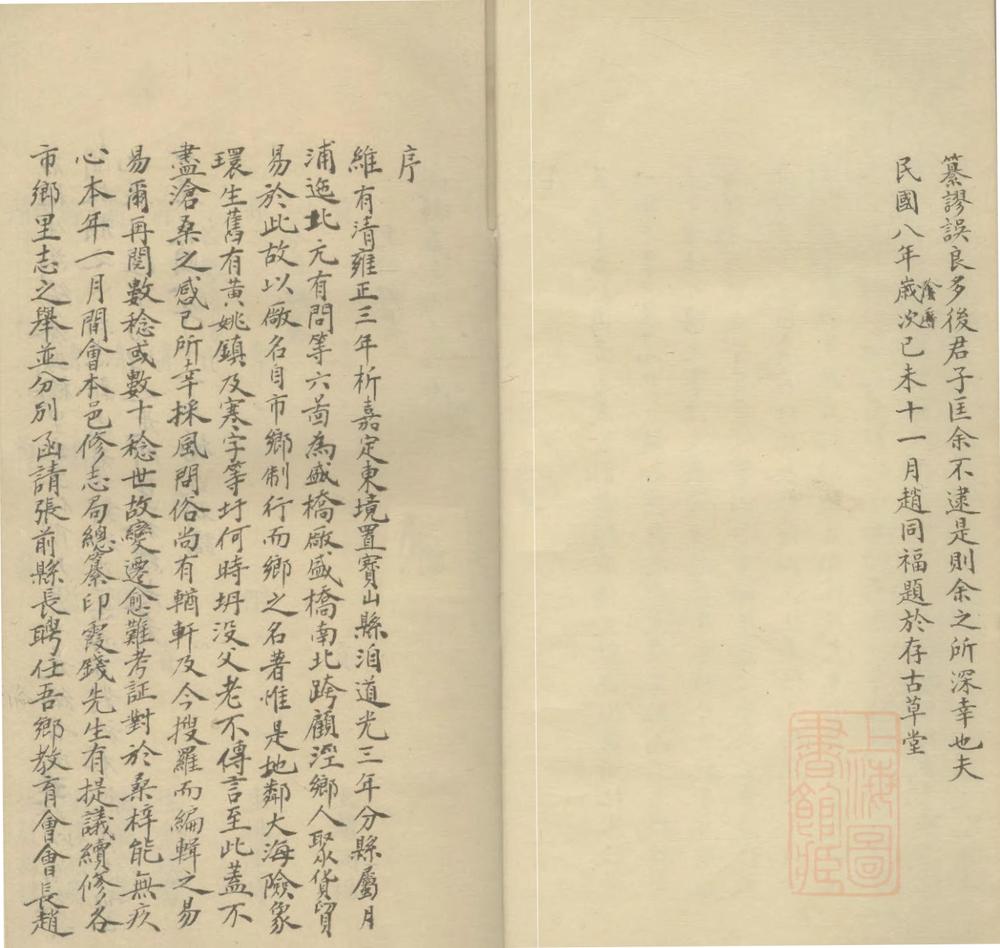 纂謬誤良多後君子匡余不逮是則余之所深幸也夫
民國八年歲次陰曆己未十一月趙同福題於存古草堂
上海圖書館藏
序
維有清雍正三年析嘉定東境置寶山縣洎道光三年分縣屬月
浦迤北元有問等六啚為盛橋厰盛橋南北跨顧涇鄉人聚貨貿
易於此故以厰名自市鄉制行而鄉之名著惟是地鄰大海險象
環生舊有黃姚鎮及寒字等圩何時坍没父老不傳言至此蓋不
盡滄桑之感已所幸採風問俗尚有輶軒及今搜羅而編輯之易
易爾再閱數稔或數十稔世故變遷愈難考証對於桑梓能無疚
心本年一月間會本邑修志局總纂印霞錢先生有提議續修各
市鄉里志之舉並分別函請張前縣長聘任吾鄉教育會會長趙